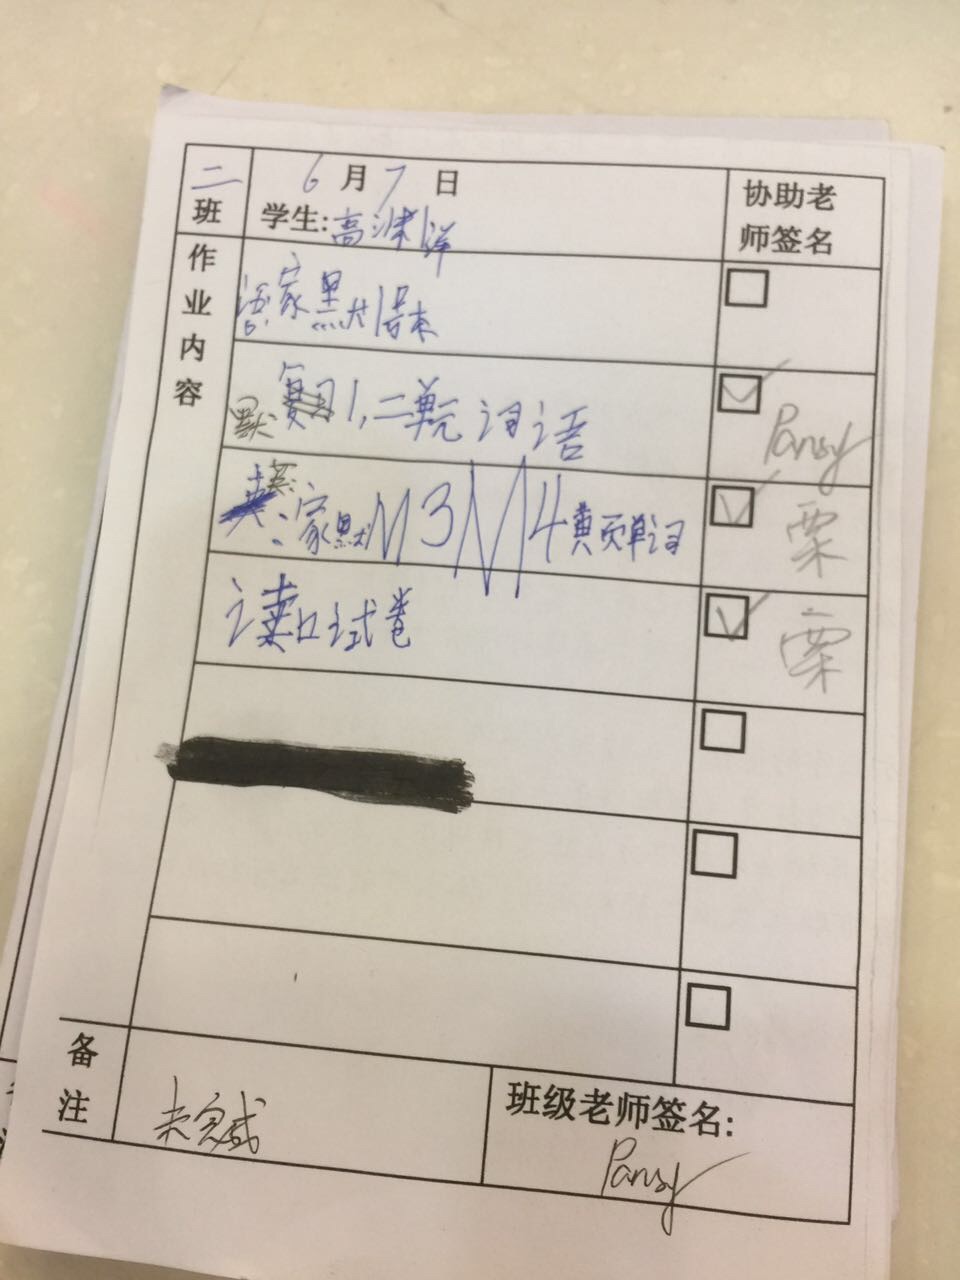 二班
6月7日
学生:高
协助老师签名
作业内容
语家默
默 1,二单元词语
Pansy
英:家默M3M4黄页单词
栗
读口试卷
栗
备注
未完成
班级老师签名:
Pansy